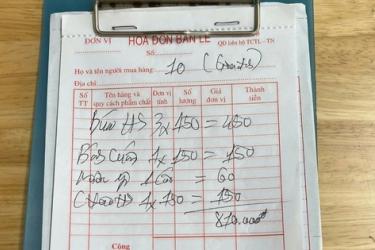 ĐƠN VỊ
HÓA ĐƠN BÁN LẺ
QĐ liên bộ TCTL - TN
Số
Họ và tên người mua hàng: 10
Địa chỉ
Số TT
Tên hàng và quy cách phẩm chất
Đơn vị tính
Số lượng
Giá đơn vị
Thành tiền
Bún HS 3 x 150 = 450
Bánh Cuốn 1 x 150 = 150
= 60
= 150
810.000đ
Cộng